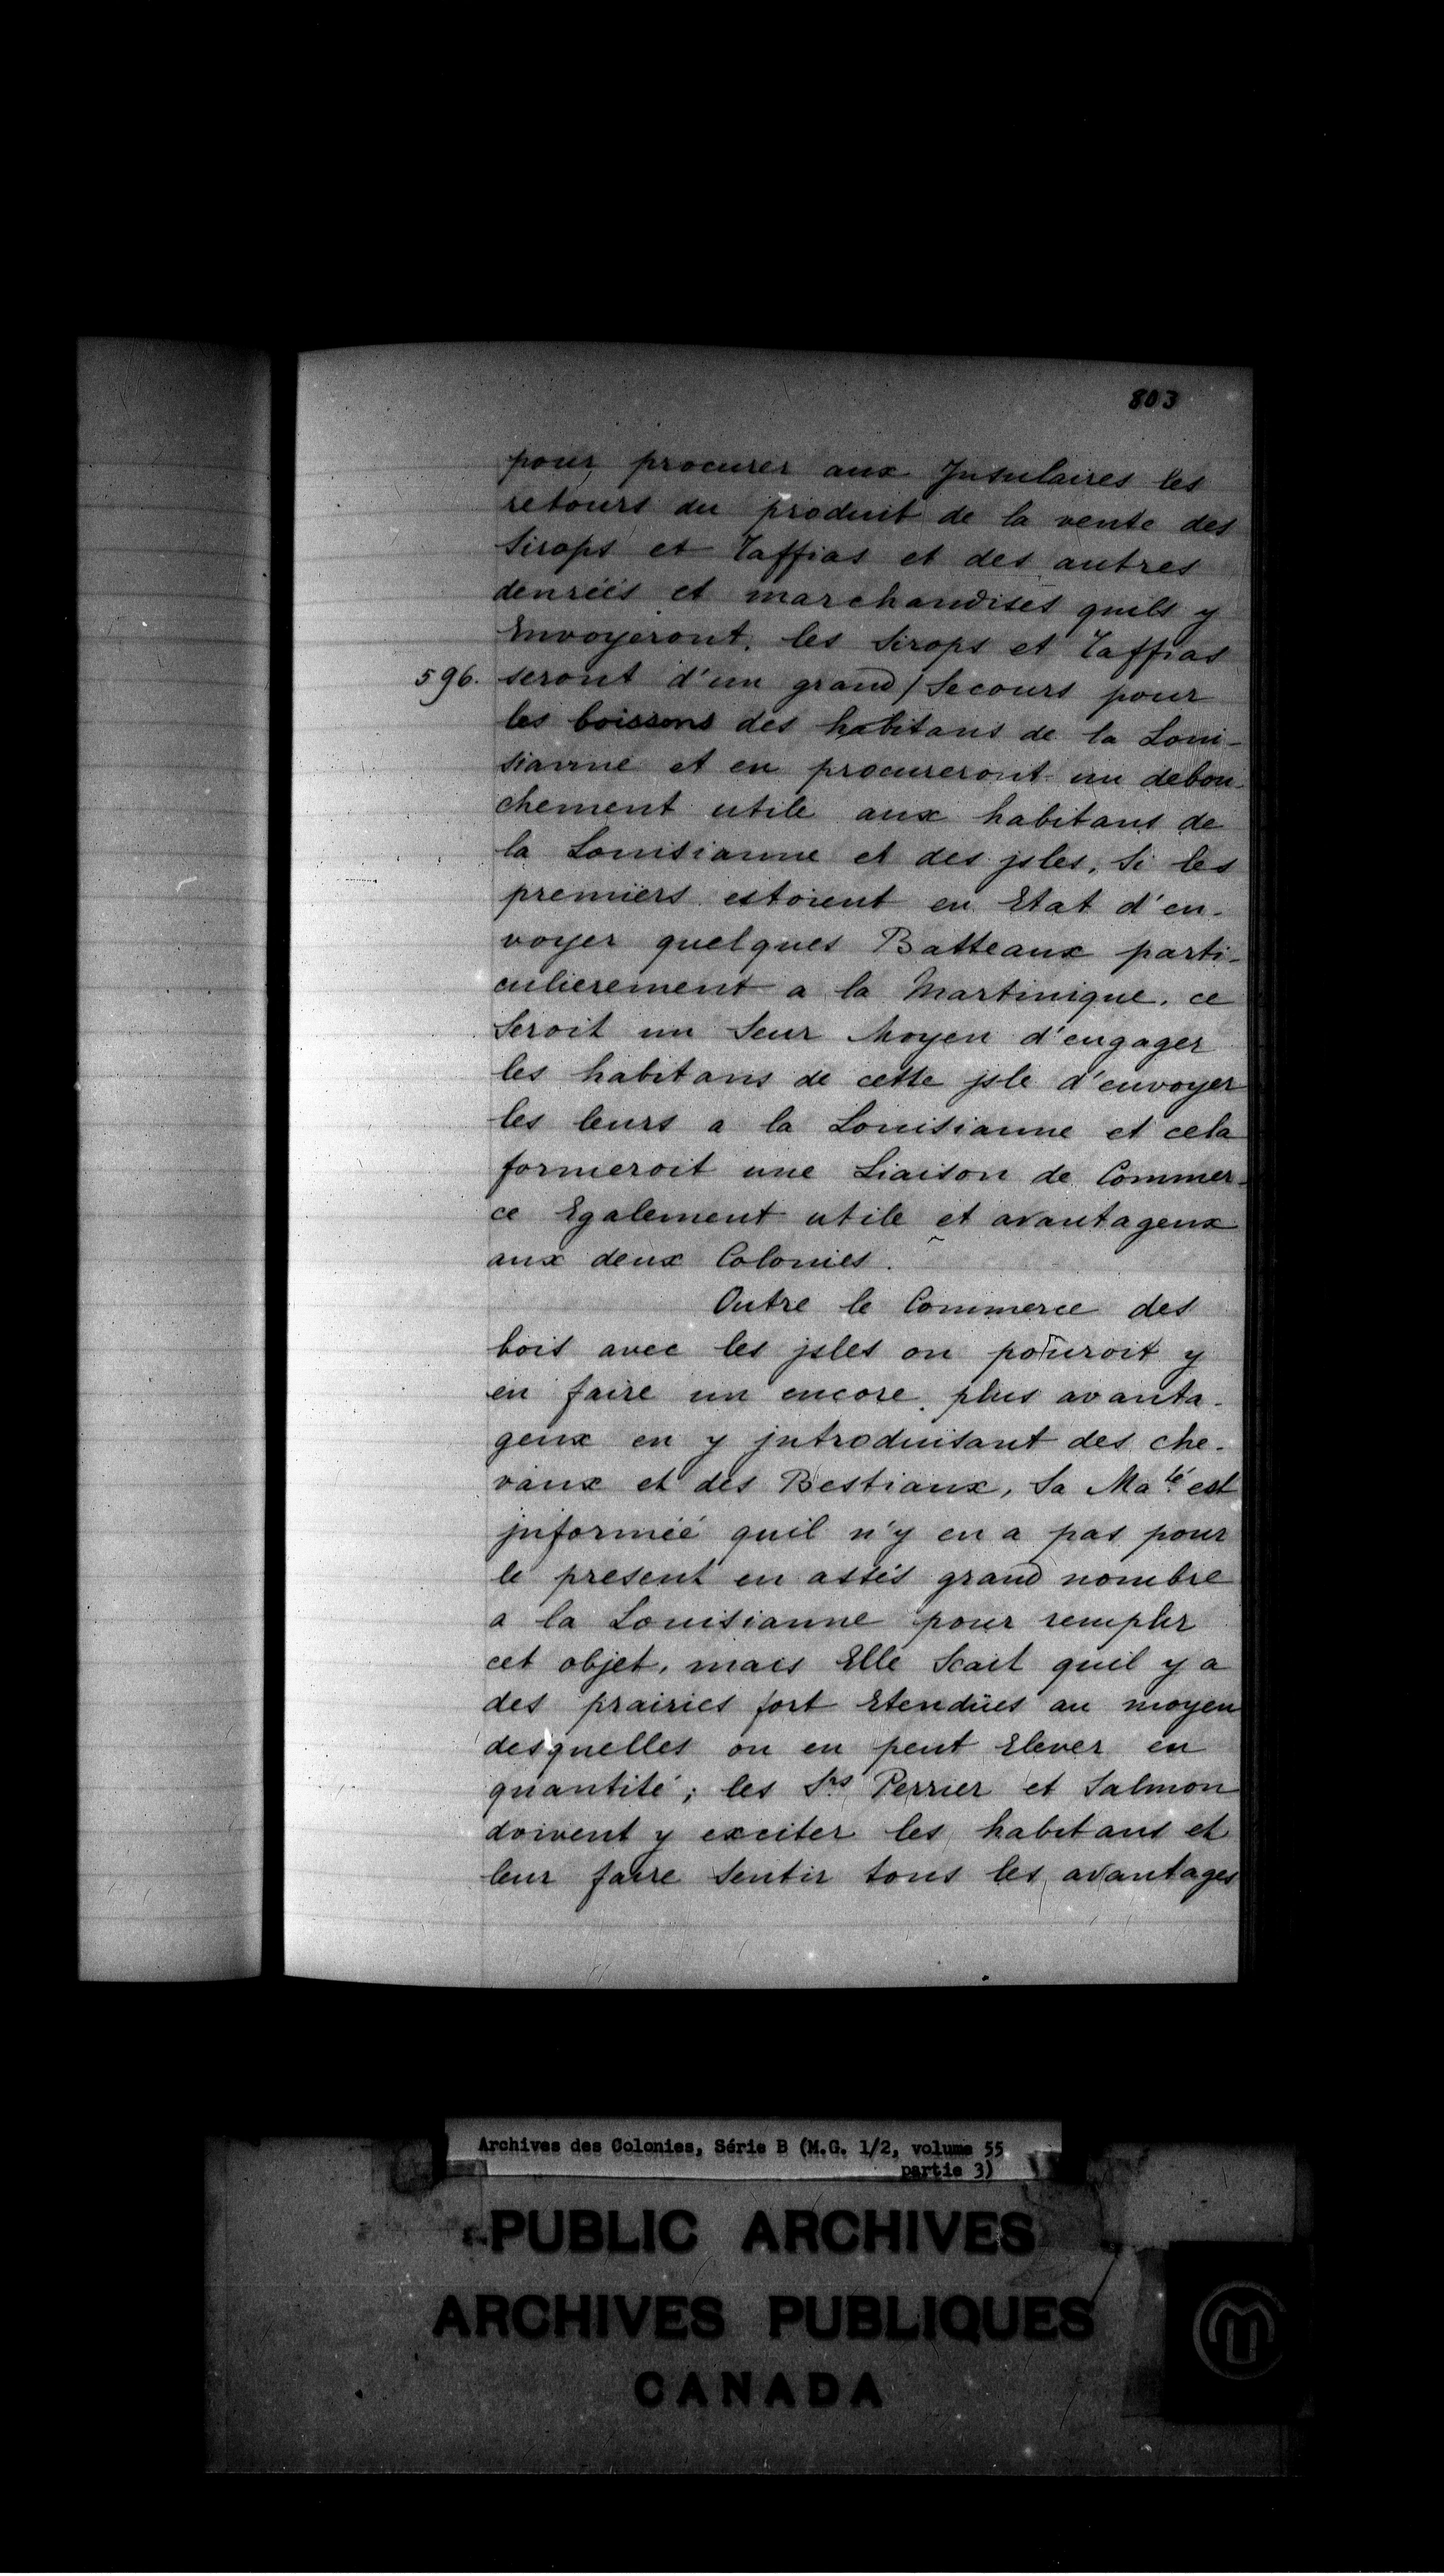 803
pour procurer aux Jnsulaires les
retours du produit de la vente des
Sirops et Taffias et des autres
denréés et marchandises quils y
Envoyeront, les Sirops et Taffias
596. seront d'un grand/Secours pour
les boissons des habitans de la Loui-
sianne et en procureront un debou-
chement utile aux habitans de
la Louisianne et des jsles, Si les
premiers estoient en Etat d'en-
voyer quelques Batteaux parti-
culierement a la Martinique, ce
Seroit un Seur Moyen d'engager
les habitans de cette jsle d'envoyer
les leurs a la Louisianne et cela
formeroit une Liaison de Commer-
ce Egalement utile et avantageux
aux deux Colonies.
Outre le Commerce des
bois avec les jsles on pouroit y
en faire un encore plus avanta-
geux en y jntroduisant des che-
vaux et des Bestiaux, Sa Ma.té est
jnforméé quil n'y en a pas pour
le present en assés grand nombre
a la Louisianne pour remplir
cet objet, mais Elle Scait quil y a
des prairies fort Etendües au moyen
desquelles on en peut Elever en
quantité; les Srs Perrier et Salmon
doivent y exciter les habitans et
leur faire Sentir tous les avantages
Archives des Colonies, Série B (M.G. 1/2, volume 55
partie 3)
PUBLIC ARCHIVES
ARCHIVES PUBLIQUES
CANADA